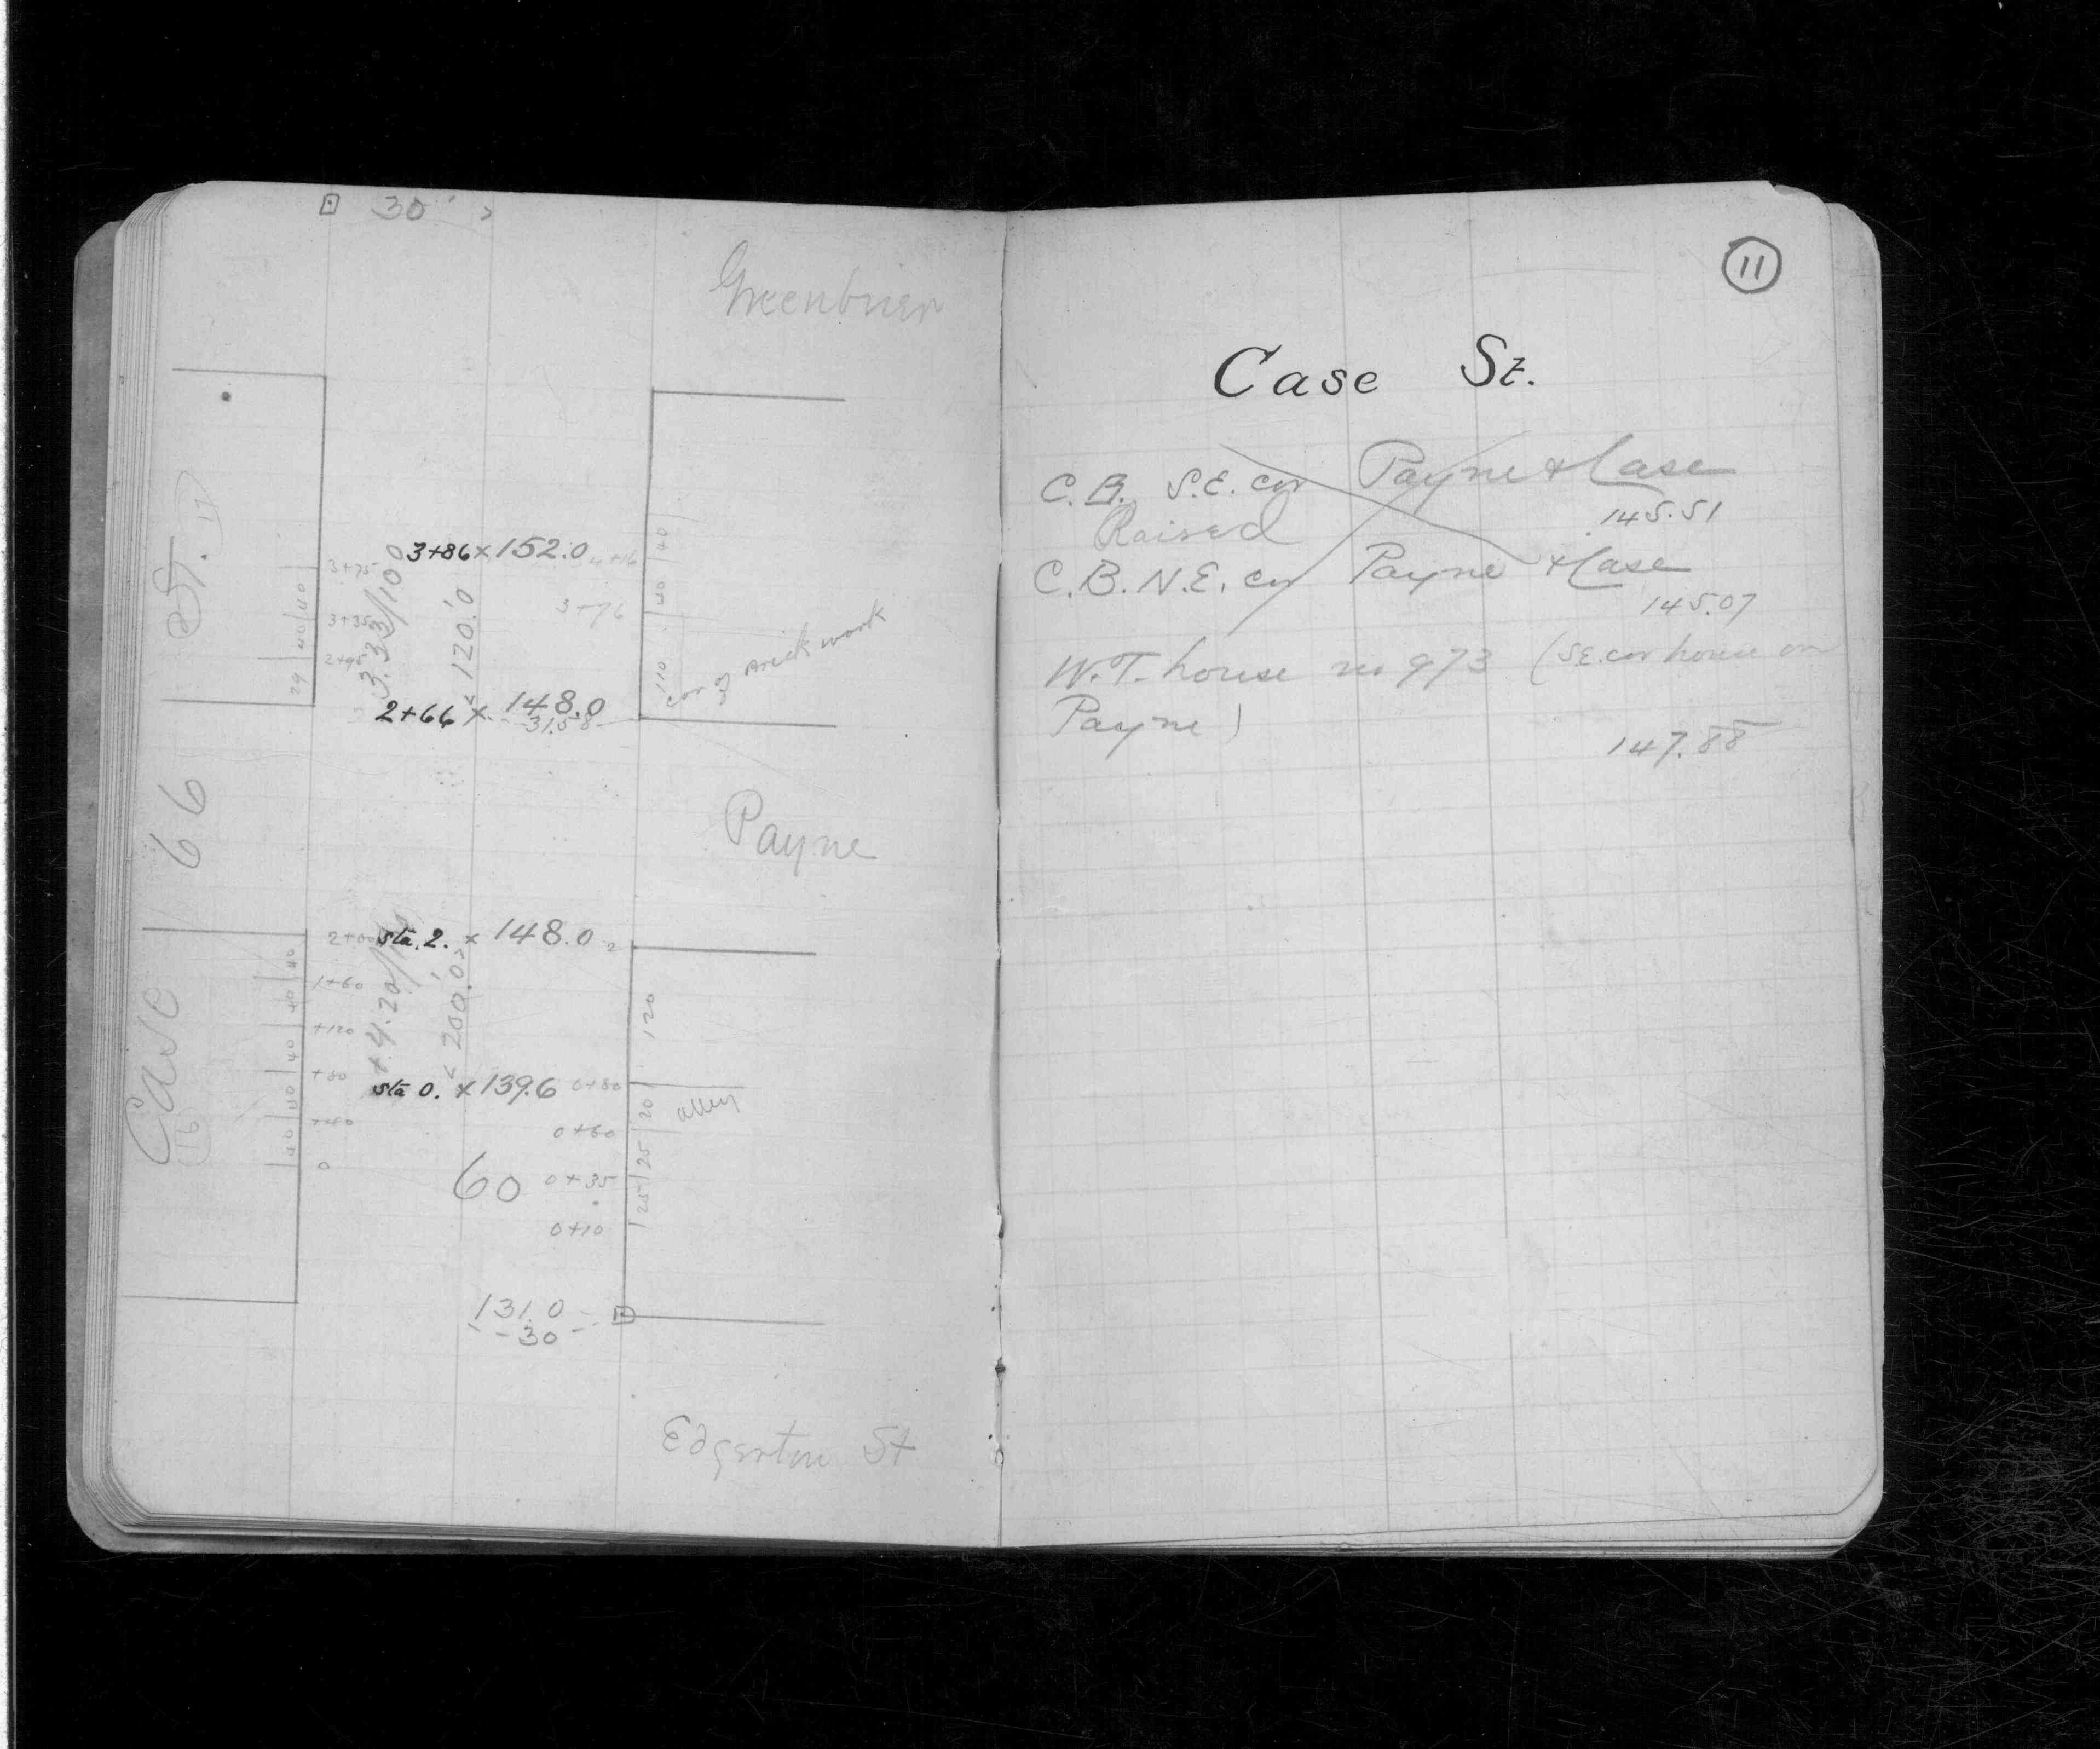 30'
Greenbrier
St.
17
3+86 x 152.0 4+16
3+75
3+76
3+35
2+95
29 | 40 | 40
3.33/100
< 120.'0
110 | 40 | 40
cor of brick work
2+66 x 148.0
31.58
66
Payne
2+00 sta. 2. x 148.0 2
1+60
+120
+80
+40
0
40 | 40 | 40 | 40 | 40
+4.20/100
< 200.'0 >
120
Case
16
sta 0. x 139.6 0+80
20
alley
0+60
25
60 0+35
25
0+10
131.0
-30-
Edgerton St
11
Case St.
C.B. S.E. cor Payne & Case
145.51
Raised
C.B. N.E. cor Payne & Case
145.07
W.T. house no 973 (S.E. cor house on
Payne)
147.88